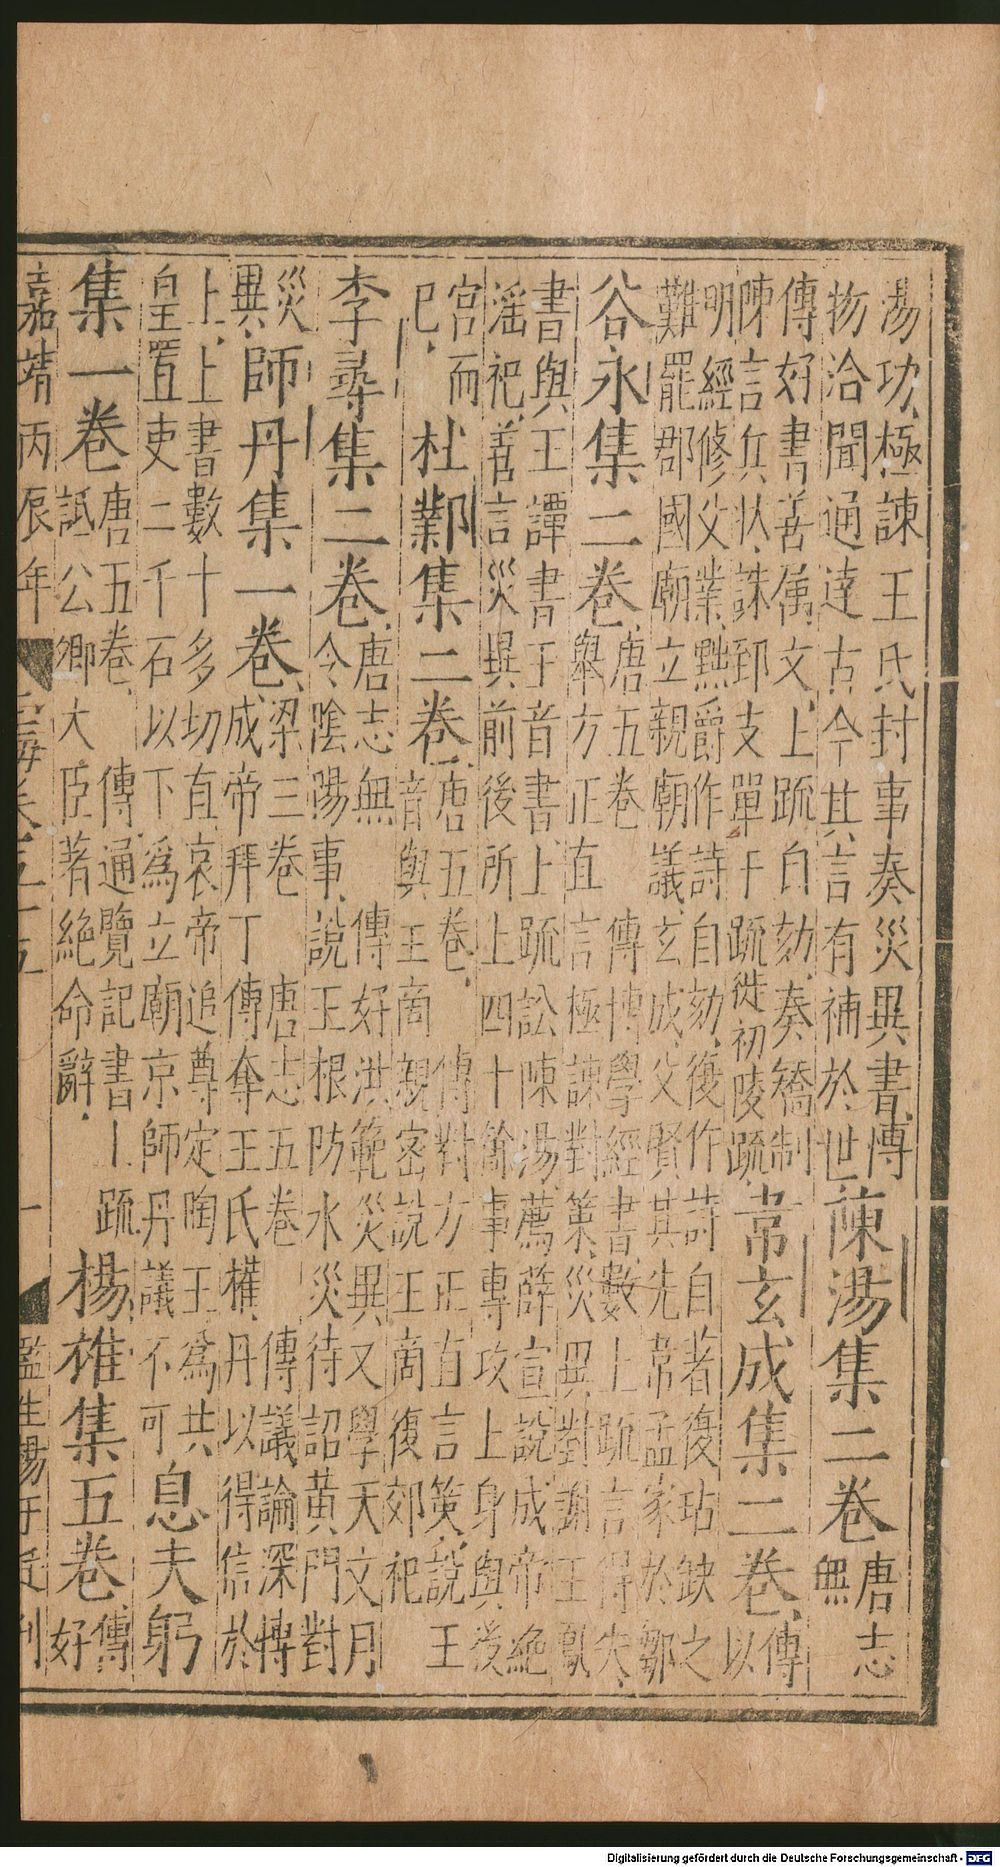 湯功極諫王氏封事奏災異書傳
物洽聞通達古今其言有補於世
陳湯集二卷
唐志
無
傳好書善属文上疏自劾奏矯制
陳言兵狀誅郅支單于疏徙初陵疏
韋玄成集二卷
傳
以
明經修父業黜爵作詩自劾復作詩自著復玷缺之
難罷郡國廟立親廟議玄成父賢其先韋孟家於鄒
谷永集二卷
唐五卷 傳博學經書數上疏言得失
舉方正直言極諫對策災異對謝王鳳
書與王譚書王音書上疏訟陳湯薦薛宣說成帝絶
滛祀善言災異前後所上四十餘事專攻上身與後
宮而
已
杜鄴集二卷
唐五卷 傳對方正直言策說王
音與王商親宻說王商復郊祀
李尋集二卷
唐志無 傳好洪範災異又學天文月
令隂陽事說王根防水災待詔黃門對
災
異
師丹集一卷
梁三卷 唐志五卷 傳議論深博
成帝拜丁傅奪王氏權丹以得信於
上上書數十多切直哀帝追尊定陶王為共
皇置吏二千石以下為立廟京師丹議不可
息夫躬
集一卷
唐五卷 傳通覽記書上疏
詆公卿大臣著絶命辭
楊雄集五卷
傳
好
嘉靖丙辰年
玉海卷五十五
監生楊于廷刊
Digitalisierung gefördert durch die Deutsche Forschungsgemeinschaft - DFG